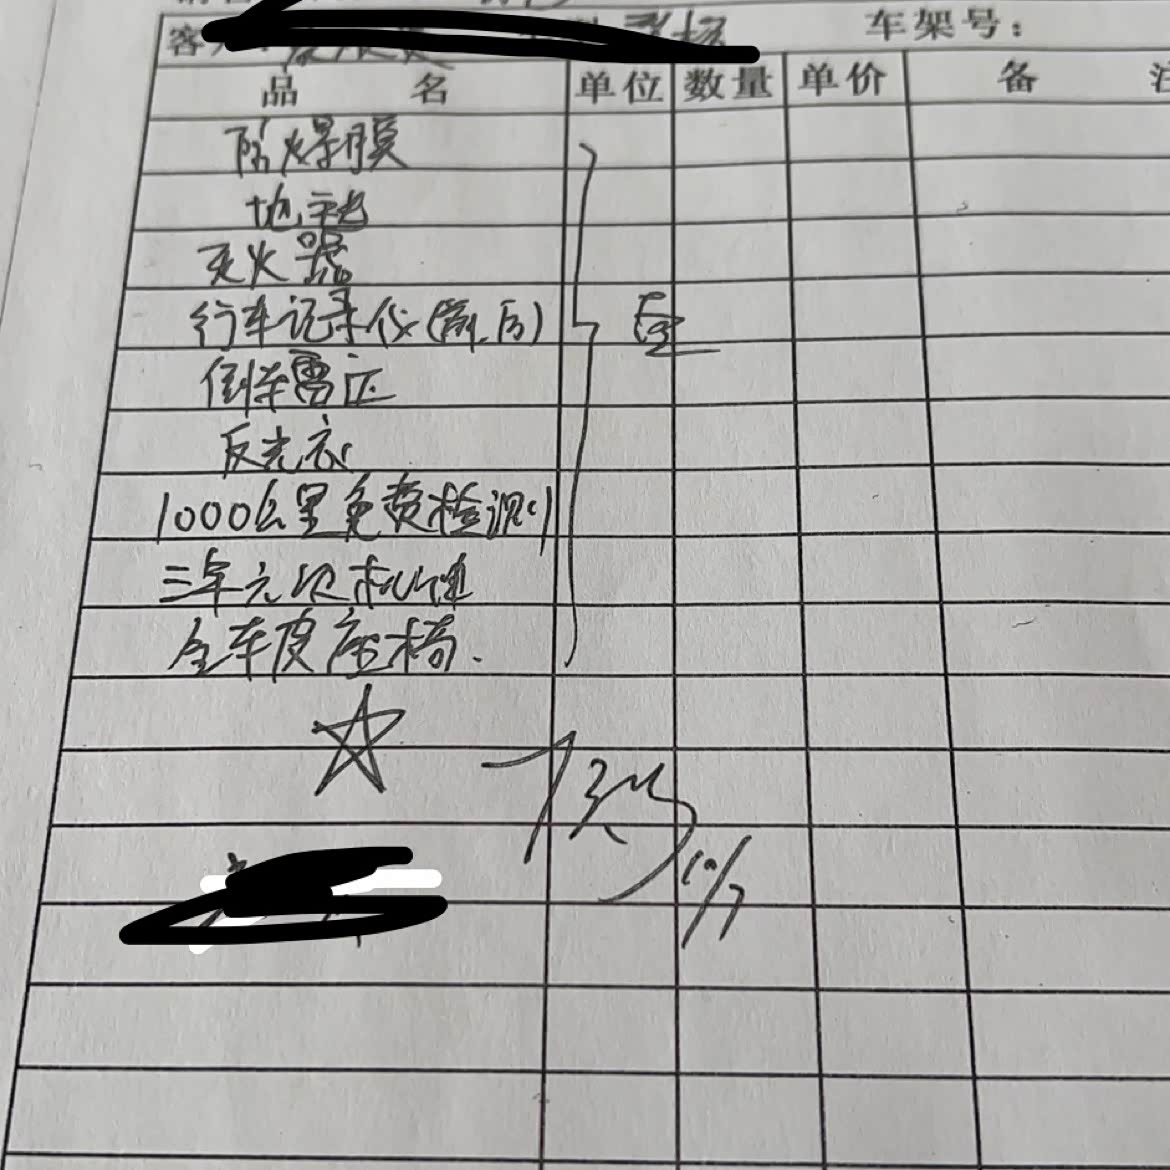 车架号：
品 名 单位 数量 单价 备 注
防爆膜
地毯
灭火器
行车记录仪(前.后)
倒车雷达
反光衣
1000公里免费检测
三年六次机油
全车皮座椅.
10/7